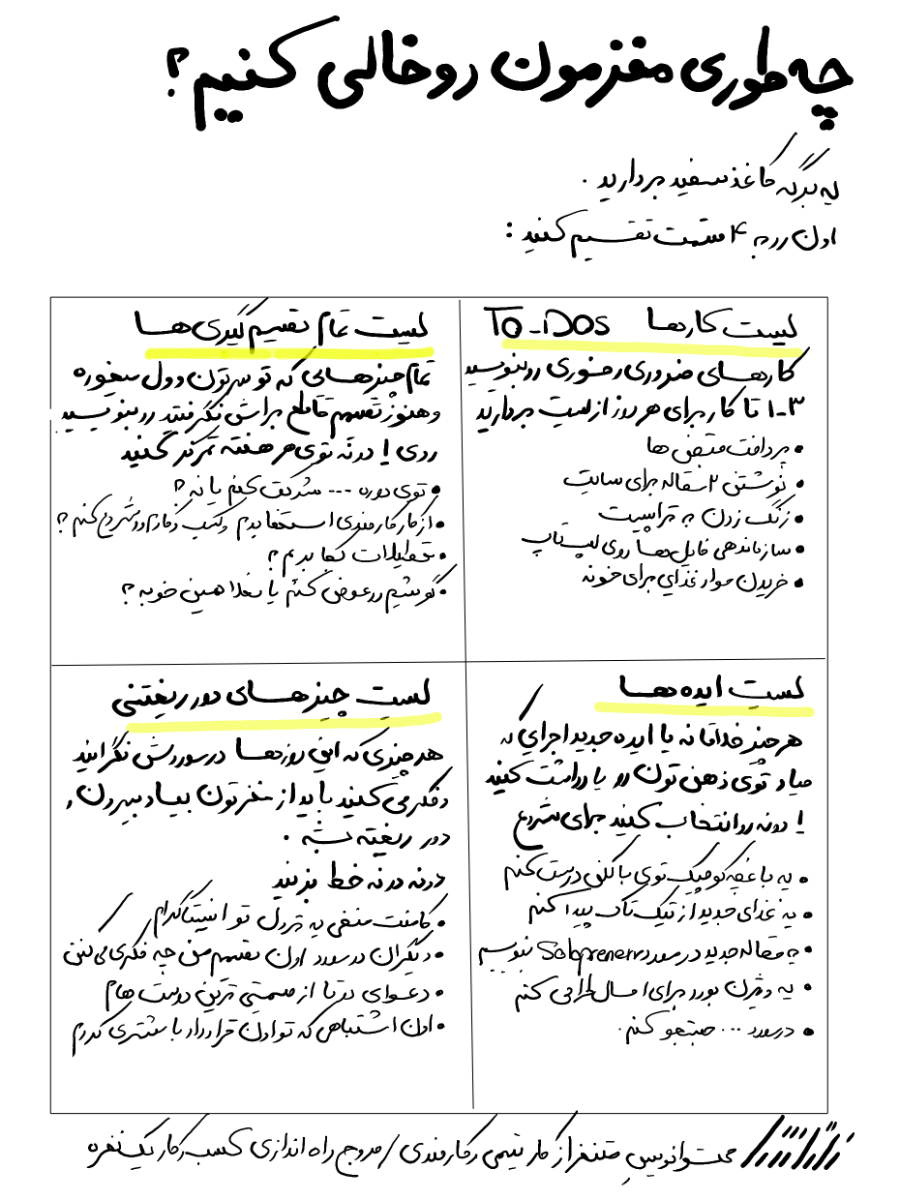 چه‌طوری مغزمون رو خالی کنیم؟
یه برگه کاغذ سفید بردارید.
اون رو به ۴ قسمت تقسیم کنید:
لیست کارها TO_DOS
کارهای ضروری و فوری رو بنویسید
۱-۳ تا کار برای هر روز از لیست بردارید
• پرداخت قبض ها
• نوشتن ۲ مقاله برای سایت
• زنگ زدن به تراپیست
• سازماندهی فایل‌ها روی لپ‌تاپ
• خریدن مواد غذایی برای خونه
لیست تمام تصمیم‌گیری‌ها
تمام چیزهایی که تو سرتون وول میخوره
و هنوز تصمیم قاطع براش نگرفتید رو بنویسید
روی ۱ دونه توی هر هفته تمرکز کنید
• توی دوره ... شرکت کنم یا نه؟
• از کار کارمندی استعفا بدم و کسب و کارم رو شروع کنم؟
• تعطیلات کجا بریم؟
• گوشیم رو عوض کنم یا فعلا همین خوبه؟
لیست ایده‌ها
هر چیز خلاقانه یا ایده جدید اجرایی که
میاد توی ذهن‌تون رو یادداشت کنید
۱ دونه رو انتخاب کنید برای شروع
• یه باغچه کوچیک توی بالکن درست کنم
• یه غذای جدید از تیک تاک پیدا کنم
• یه مقاله جدید در مورد Solopreneur بنویسم
• یه ویژن بورد برای امسال طراحی کنم
• در مورد ... جستجو کنم.
لیست چیزهای دور ریختنی
هر چیزی که این روزها در موردش نگرانید
و فکر می‌کنید باید از مغزتون بیاد بیرون و
دور ریخته بشه.
دونه دونه خط بزنید
• کامنت منفی یه ترول تو اینستاگرام
• دیگران در مورد اون تصمیم من چه فکری می‌کنن
• دعوای دو تا از صمیمی ترین دوست هام
• اون اشتباهی که تو اون قرارداد با مشتری کردم
محتوانویسِ متنفر از کار تیمی و کارمندی / مروج راه اندازی کسب و کار یک‌نفره